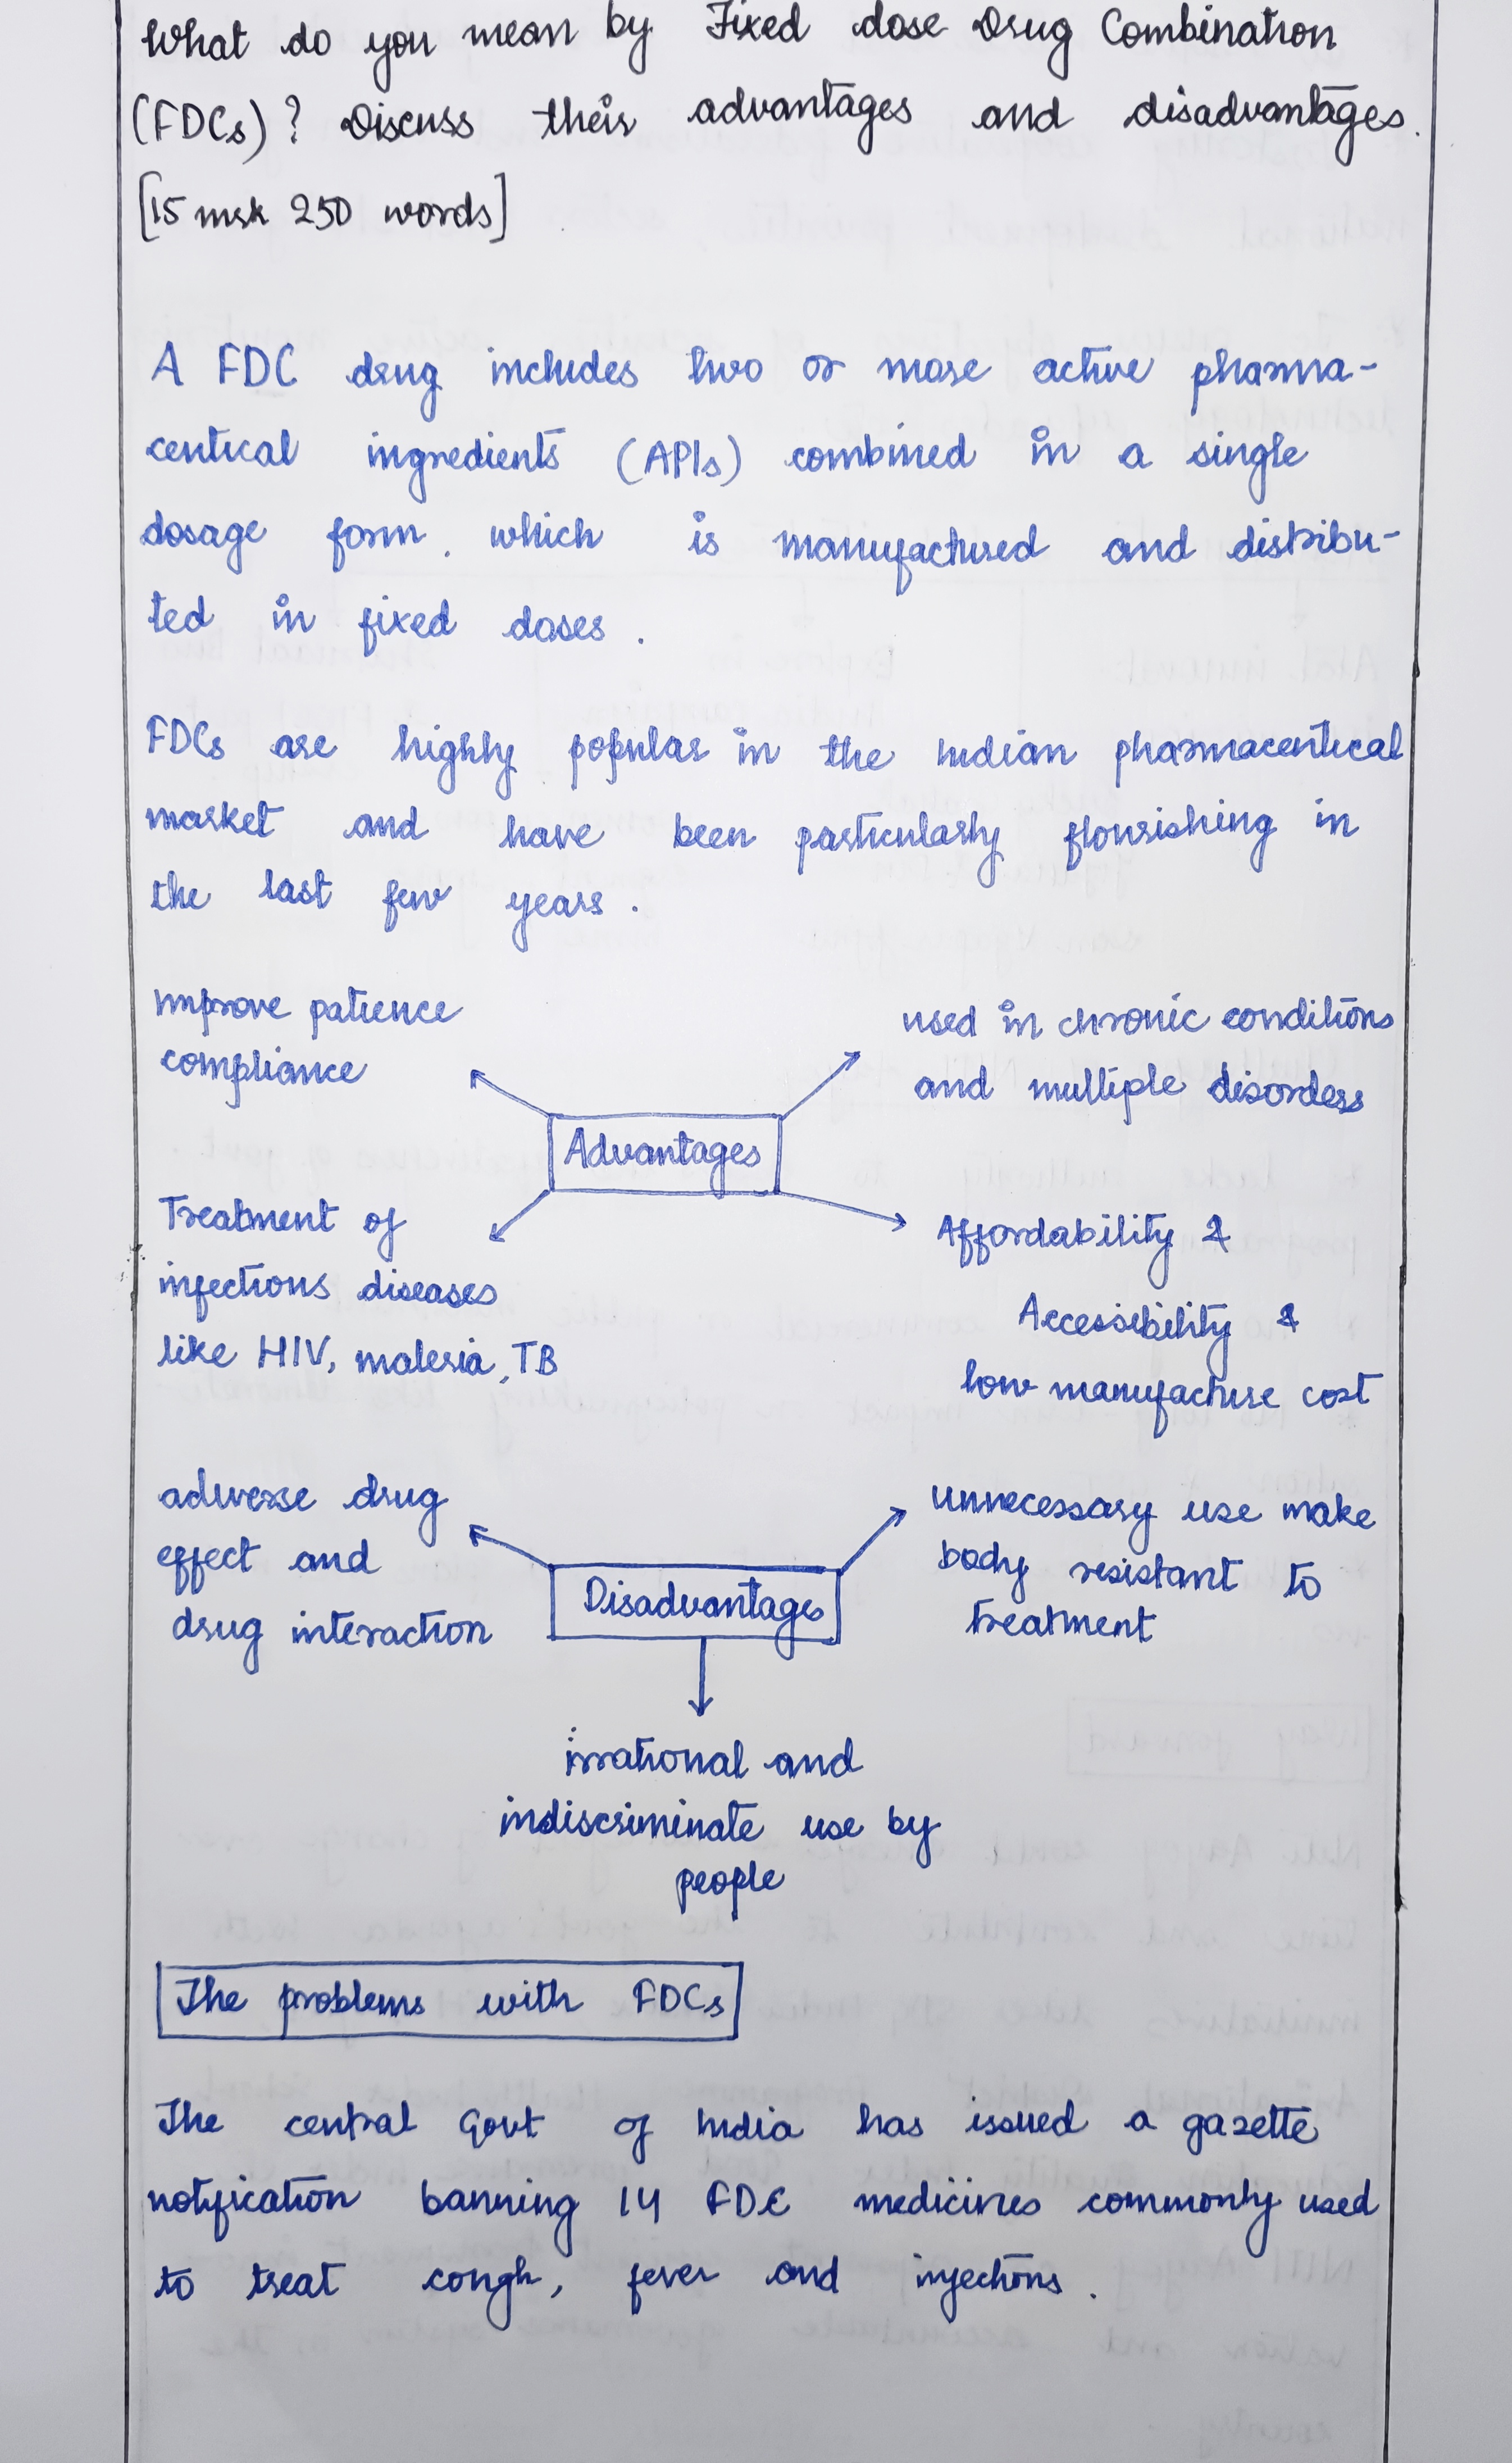 What do you mean by Fixed dose Drug Combination
(FDCs)? Discuss their advantages and disadvantages.
[15 mrk 250 words]
A FDC drug includes two or more active pharma-
ceutical ingredients (APIs) combined in a single
dosage form, which is manufactured and distribu-
ted in fixed doses.
FDCs are highly popular in the Indian pharmaceutical
market and have been particularly flourishing in
the last few years.
improve patience
compliance
used in chronic conditions
and multiple disorders
Advantages
Treatment of
infections diseases
like HIV, maleria, TB
Affordability &
Accessibility &
low manufacture cost
adverse drug
effect and
drug interaction
unnecessary use make
body resistant to
treatment
Disadvantages
irrational and
indiscriminate use by
people
The problems with FDCs
The central Govt of India has issued a gazette
notification banning 14 FDC medicines commonly used
to treat cough, fever and injections.